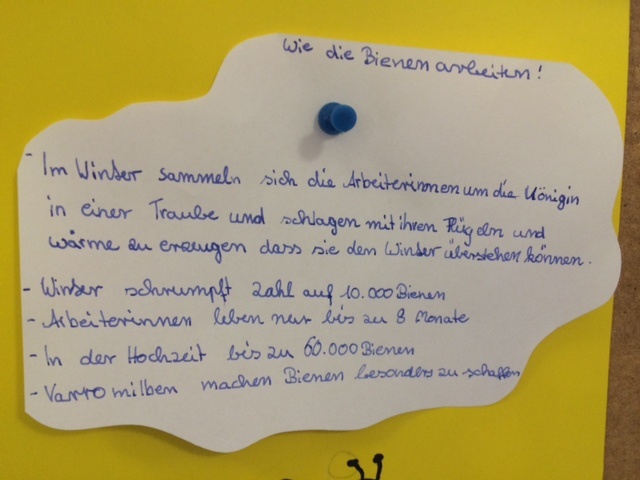 Wie die Bienen arbeiten!
- Im Winter sammeln sich die Arbeiterinnen um die Königin
in einer Traube und schlagen mit ihren Flügeln und
wärme zu erzeugen dass sie den Winter überstehen können.
- Winter schrumpft zahl auf 10.000 Bienen
- Arbeiterinnen leben nur bis zu 8 Monate
- In der Hochzeit bis zu 60.000 Bienen
- Varro milben machen Bienen besonders zu schaffen